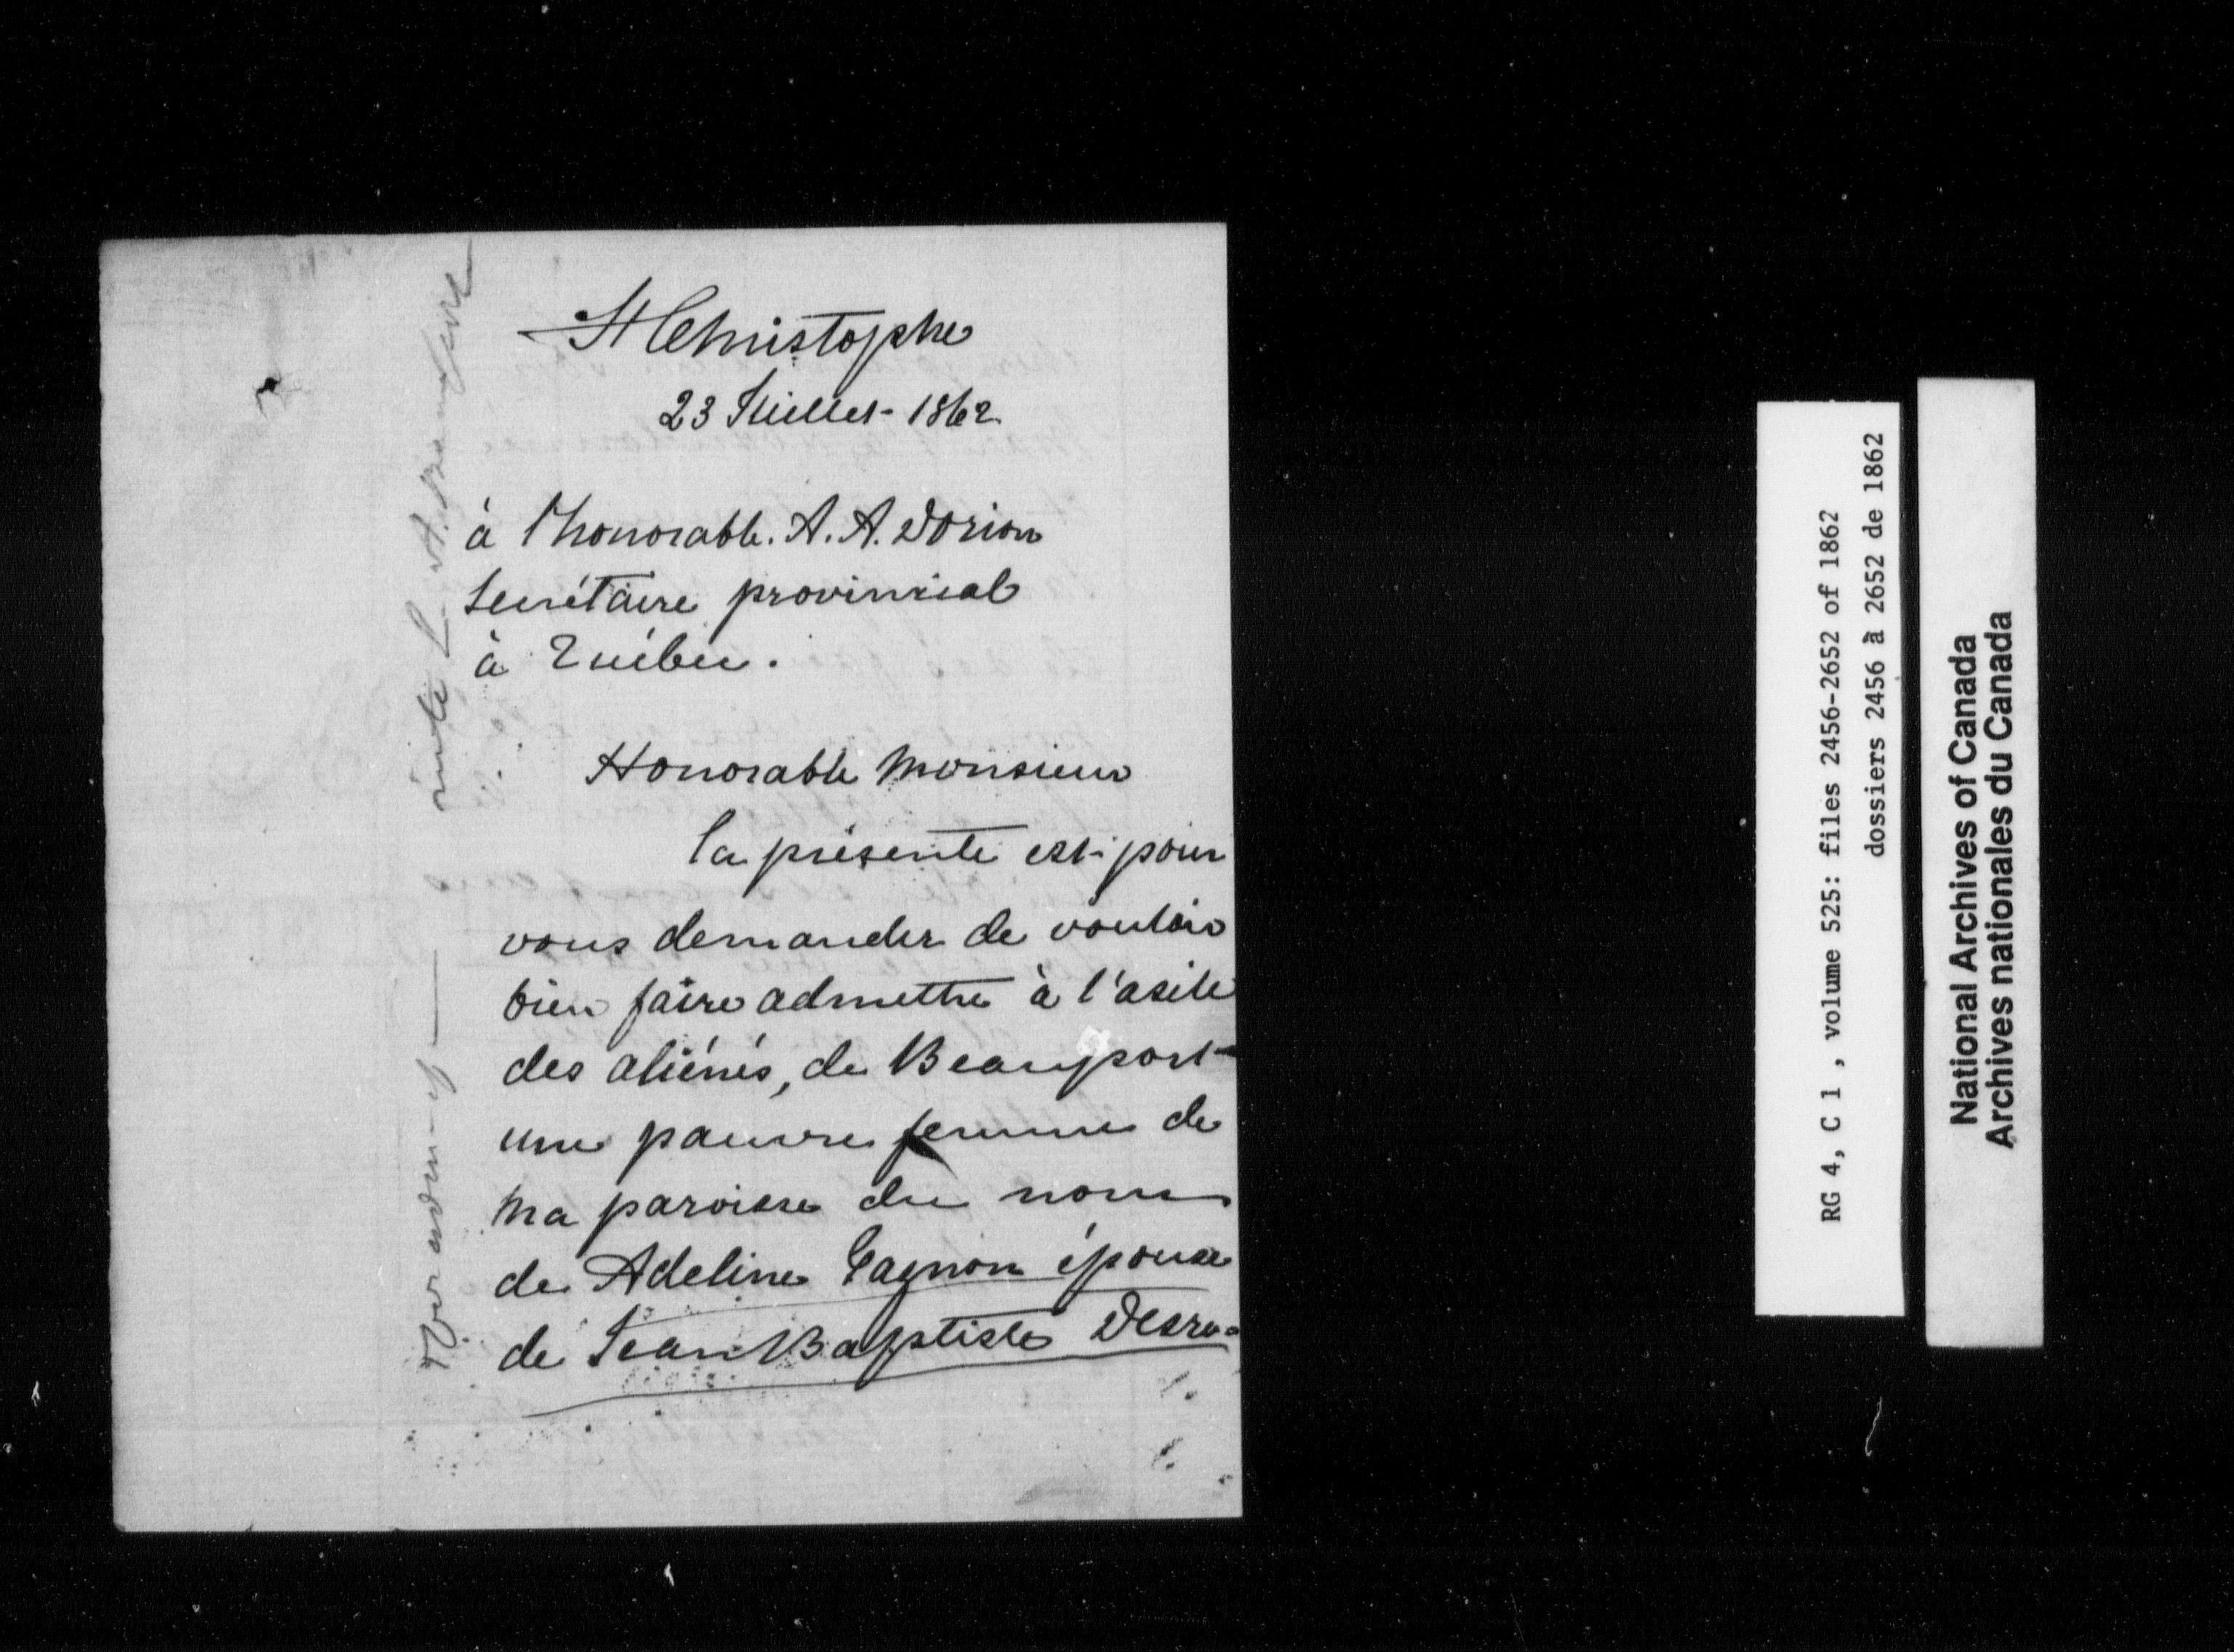 St Christophe
23 Juillet 1862
à l'honorable. A. A. Dorion
Secrétaire provincial
à Québec.
Honorable Monsieur
la présente est pour
vous demander de vouloir
bien faire admettre à l'asile
des aliénés, de Beauport
une pauvre femme de
ma paroisse du nom
de Adeline Gagnon épouse
de Jean Baptiste Desro-
RG 4, C 1 , volume 525: files 2456-2652 of 1862
dossiers 2456 à 2652 de 1862
National Archives of Canada
Archives nationales du Canada